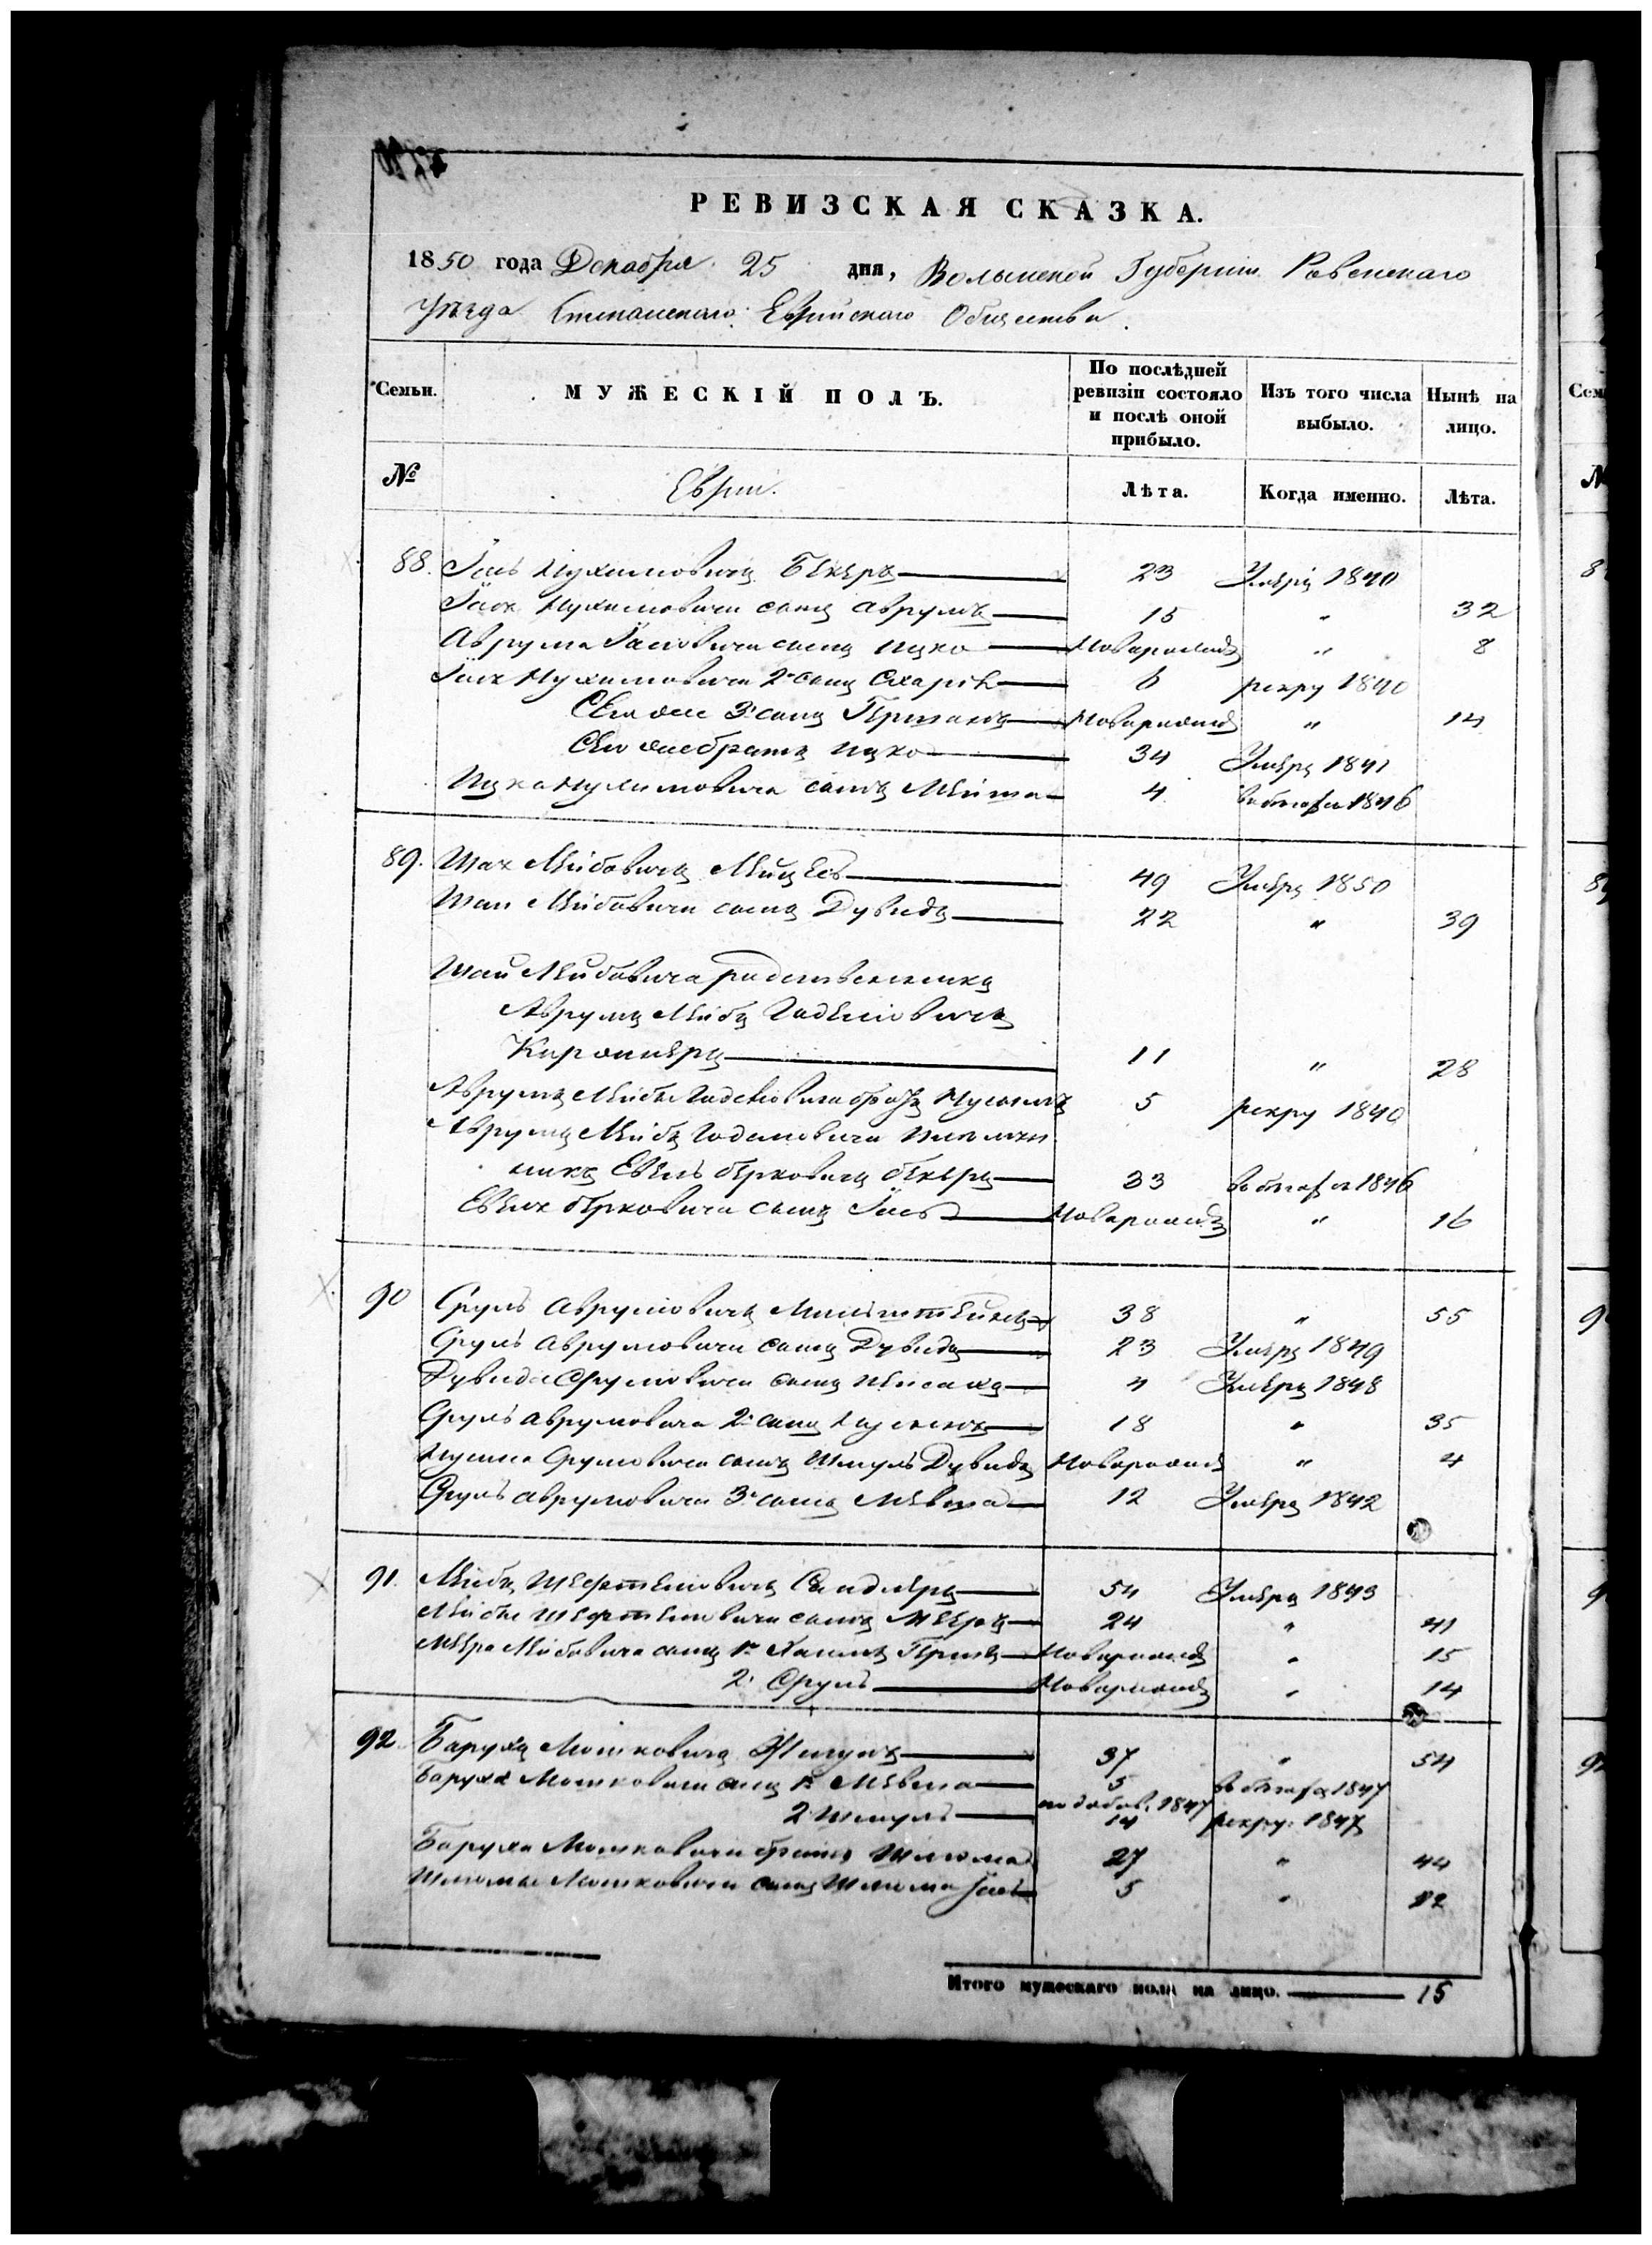 РЕВИЗСКАЯ СКАЗКА.
1850 года Декабря 25 дня, Волынской Губернии Ровенскаго
Уѣзда Степанскаго Еврейскаго Общества.
Семьи.
МУЖЕСКІЙ ПОЛЪ.
По послѣдней ревизіи состояло и послѣ оной прибыло.
Изъ того числа выбыло.
Нынѣ на лицо.
№
Евреи.
Лѣта.
Когда именно.
Лѣта.
88. Іось Нухимовичъ Бекеръ 23 Умеръ 1840
Іося Нухимовича сынъ Аврумъ 15 " 32
Аврума Іосіовича сынъ Ицко Новорожд " 8
Іося Нухимовича 2й сынъ 6 рекру 1840
Его же 3й сынъ Гершонъ Новорожд " 14
Его же братъ Ицко 34 Умеръ 1841
Ицка Нухимовича сынъ 4 въ бѣгахъ 1846
89. Шая Лейбовичъ 49 Умеръ 1850
Шаи Лейбовича сынъ Дувидъ 22 " 39
Шаи Лейбовича родственникъ
Аврумъ Лейбъ Годелiовичъ
11 " 28
Аврумъ Лейбы Годелiовича братъ 5 рекру 1840
Аврумъ Лейбъ Годелiовича племян
никъ Евель Берковичъ Бекеръ 33 въ бѣгахъ 1846
Евеля Берковича сынъ Іось Новорожд " 16
90 Сруль Аврумовичъ Мильштейнъ 38 " 55
Сруля Аврумовича сынъ Дувидъ 23 Умеръ 1849
Дувида Срулiовича сынъ Пейсахъ 4 Умеръ 1848
Сруля Аврумовича 2й сынъ 18 " 35
Срулiовича сынъ Шмуль Дувидъ Новорожд " 4
Сруля Аврумовича 3й сынъ 12 Умеръ 1842
91. Лейбъ Шефтелiовичъ Сандлеръ 54 Умеръ 1843
Лейбы Шефтелiовича сынъ Мееръ 24 " 41
Меера Лейбовича сынъ 1й Хаимъ Гершъ Новорожд " 15
2й Сруль Новорожд " 14
92. Барухъ Мошковичъ 37 " 54
Баруха Мошковича сынъ 1й 5 въ бѣгахъ 1847
2й Шмуль 14 рекру 1847
Баруха Мошковича братъ Шлёма 27 " 44
Шлёмы Мошковича сынъ Шлёма Іось 5 " 22
Итого мужескаго пола на лицо. 15